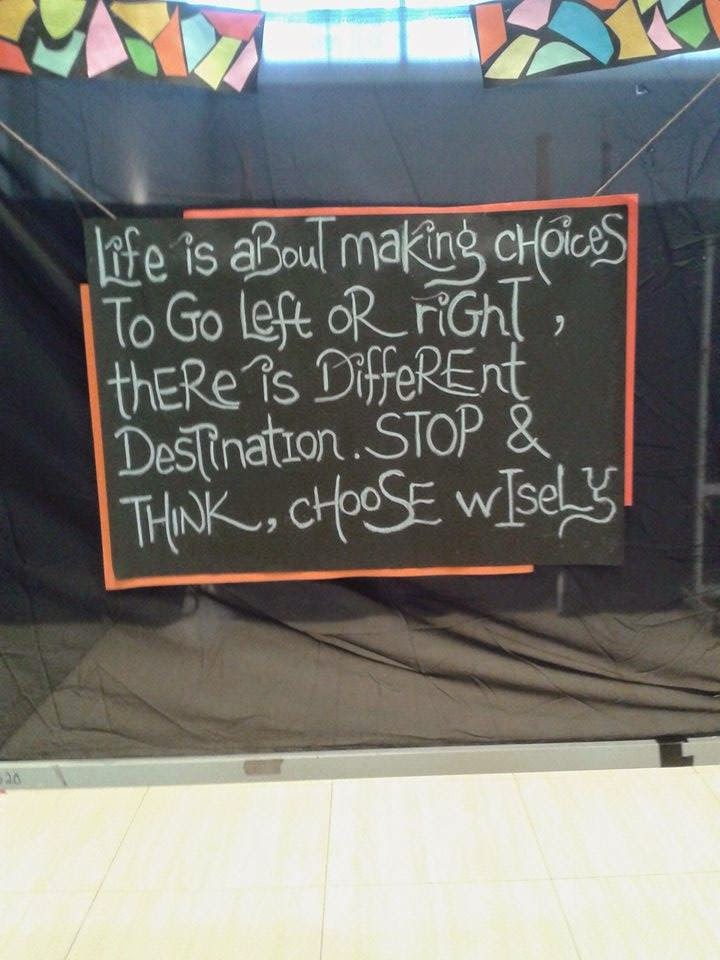 Life is aBouT making cHoiceS
To Go Left oR riGhT ,
thERe is DiffeREnt
DesTinatIon. STOP &
THiNK, cHooSE wIseLy